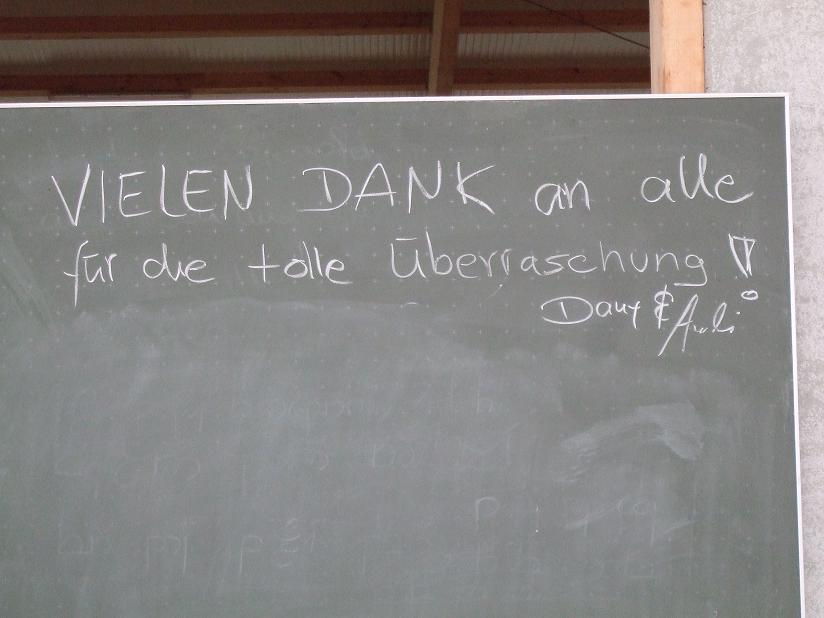 VIELEN DANK an alle
für die tolle Überraschung!
Dany &